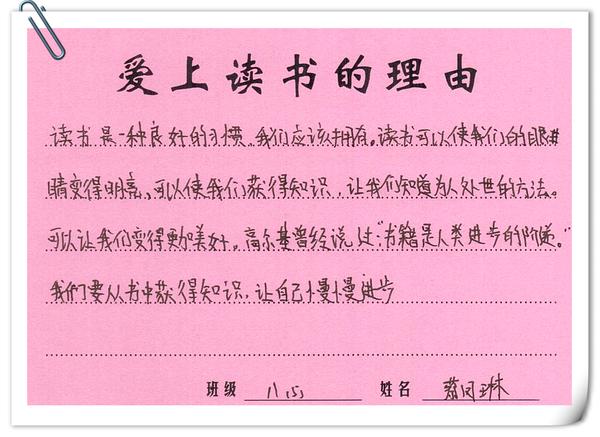 爱上读书的理由
读书是一种良好的习惯。我们应该拥有。读书可以使我们的眼
睛变得明亮。可以使我们获得知识，让我们知道为人处世的方法。
可以让我们变得更加美好。高尔基曾经说过“书籍是人类进步的阶梯。”
我们要从书中获得知识，让自己慢慢进步
班级 八 姓名 琳